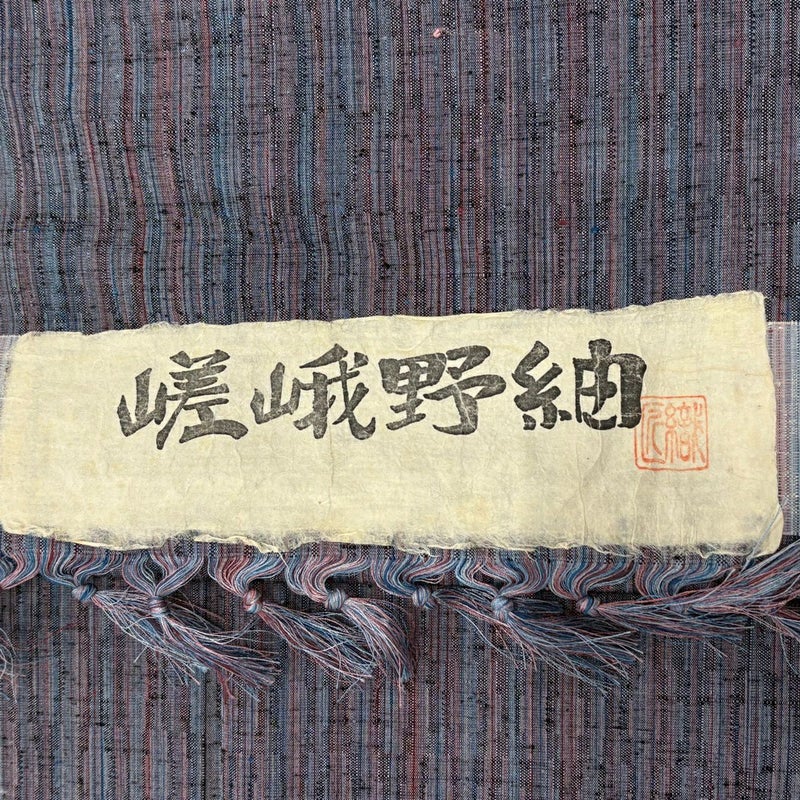 嵯峨野紬
織